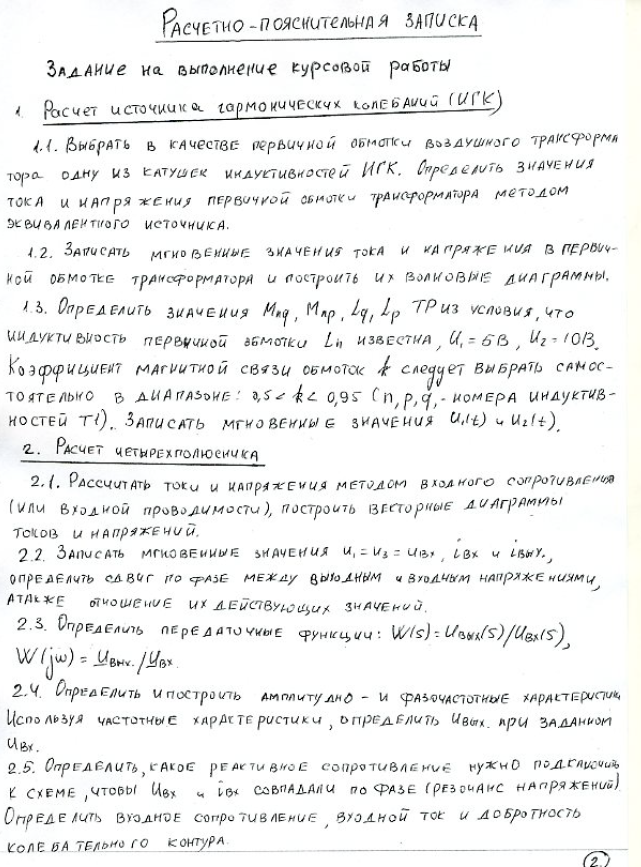 РАСЧЕТНО-ПОЯСНИТЕЛЬНАЯ ЗАПИСКА
ЗАДАНИЕ НА ВЫПОЛНЕНИЕ КУРСОВОЙ РАБОТЫ
1. РАСЧЕТ ИСТОЧНИКА ГАРМОНИЧЕСКИХ КОЛЕБАНИЙ (ИГК)
1.1. ВЫБРАТЬ В КАЧЕСТВЕ ПЕРВИЧНОЙ ОБМОТКИ ВОЗДУШНОГО ТРАНСФОРМА
ТОРА ОДНУ ИЗ КАТУШЕК ИНДУКТИВНОСТЕЙ ИГК. ОПРЕДЕЛИТЬ ЗНАЧЕНИЯ
ТОКА И НАПРЯЖЕНИЯ ПЕРВИЧНОЙ ОБМОТКИ ТРАНСФОРМАТОРА МЕТОДОМ
ЭКВИВАЛЕНТНОГО ИСТОЧНИКА.
1.2. ЗАПИСАТЬ МГНОВЕННЫЕ ЗНАЧЕНИЯ ТОКА И НАПРЯЖЕНИЯ В ПЕРВИЧ-
НОЙ ОБМОТКЕ ТРАНСФОРМАТОРА И ПОСТРОИТЬ ИХ ВОЛНОВЫЕ ДИАГРАММЫ.
1.3. ОПРЕДЕЛИТЬ ЗНАЧЕНИЯ Mnq, Mnp, Lq, Lp ТР ИЗ УСЛОВИЯ, ЧТО
ИНДУКТИВНОСТЬ ПЕРВИЧНОЙ ОБМОТКИ Ln ИЗВЕСТНА, U₁=5В, U₂=10В.
КОЭФФИЦИЕНТ МАГНИТНОЙ СВЯЗИ ОБМОТОК k СЛЕДУЕТ ВЫБРАТЬ САМОС-
ТОЯТЕЛЬНО В ДИАПАЗОНЕ: 0,5 < k < 0,95 (n, p, q, - НОМЕРА ИНДУКТИВ-
НОСТЕЙ Т1). ЗАПИСАТЬ МГНОВЕННЫЕ ЗНАЧЕНИЯ U₁(t) и U₂(t).
2. РАСЧЕТ ЧЕТЫРЕХПОЛЮСНИКА
2.1. РАССЧИТАТЬ ТОКИ И НАПРЯЖЕНИЯ МЕТОДОМ ВХОДНОГО СОПРОТИВЛЕНИЯ
(ИЛИ ВХОДНОЙ ПРОВОДИМОСТИ), ПОСТРОИТЬ ВЕКТОРНЫЕ ДИАГРАММЫ
ТОКОВ И НАПРЯЖЕНИЙ.
2.2. ЗАПИСАТЬ МГНОВЕННЫЕ ЗНАЧЕНИЯ U₁ = U₃ = Uвх, iвх И iвых.,
ОПРЕДЕЛИТЬ СДВИГ ПО ФАЗЕ МЕЖДУ ВЫХОДНЫМ И ВХОДНЫМ НАПРЯЖЕНИЯМИ,
АТАКЖЕ ОТНОШЕНИЕ ИХ ДЕЙСТВУЮЩИХ ЗНАЧЕНИЙ.
2.3. ОПРЕДЕЛИТЬ ПЕРЕДАТОЧНЫЕ ФУНКЦИИ: W(s) = Uвых(s)/Uвх(s),
W(jω) = Uвых./Uвх.
2.4. ОПРЕДЕЛИТЬ И ПОСТРОИТЬ АМПЛИТУДНО - И ФАЗОЧАСТОТНЫЕ ХАРАКТЕРИСТИКИ
ИСПОЛЬЗУЯ ЧАСТОТНЫЕ ХАРАКТЕРИСТИКИ, ОПРЕДЕЛИТЬ Uвых. ПРИ ЗАДАННОМ
Uвх.
2.5. ОПРЕДЕЛИТЬ, КАКОЕ РЕАКТИВНОЕ СОПРОТИВЛЕНИЕ НУЖНО ПОДКЛЮЧИТЬ
К СХЕМЕ, ЧТОБЫ Uвх И iвх СОВПАДАЛИ ПО ФАЗЕ (РЕЗОНАНС НАПРЯЖЕНИЙ)
ОПРЕДЕЛИТЬ ВХОДНОЕ СОПРОТИВЛЕНИЕ, ВХОДНОЙ ТОК И ДОБРОТНОСТЬ
КОЛЕБАТЕЛЬНОГО КОНТУРА.
2.